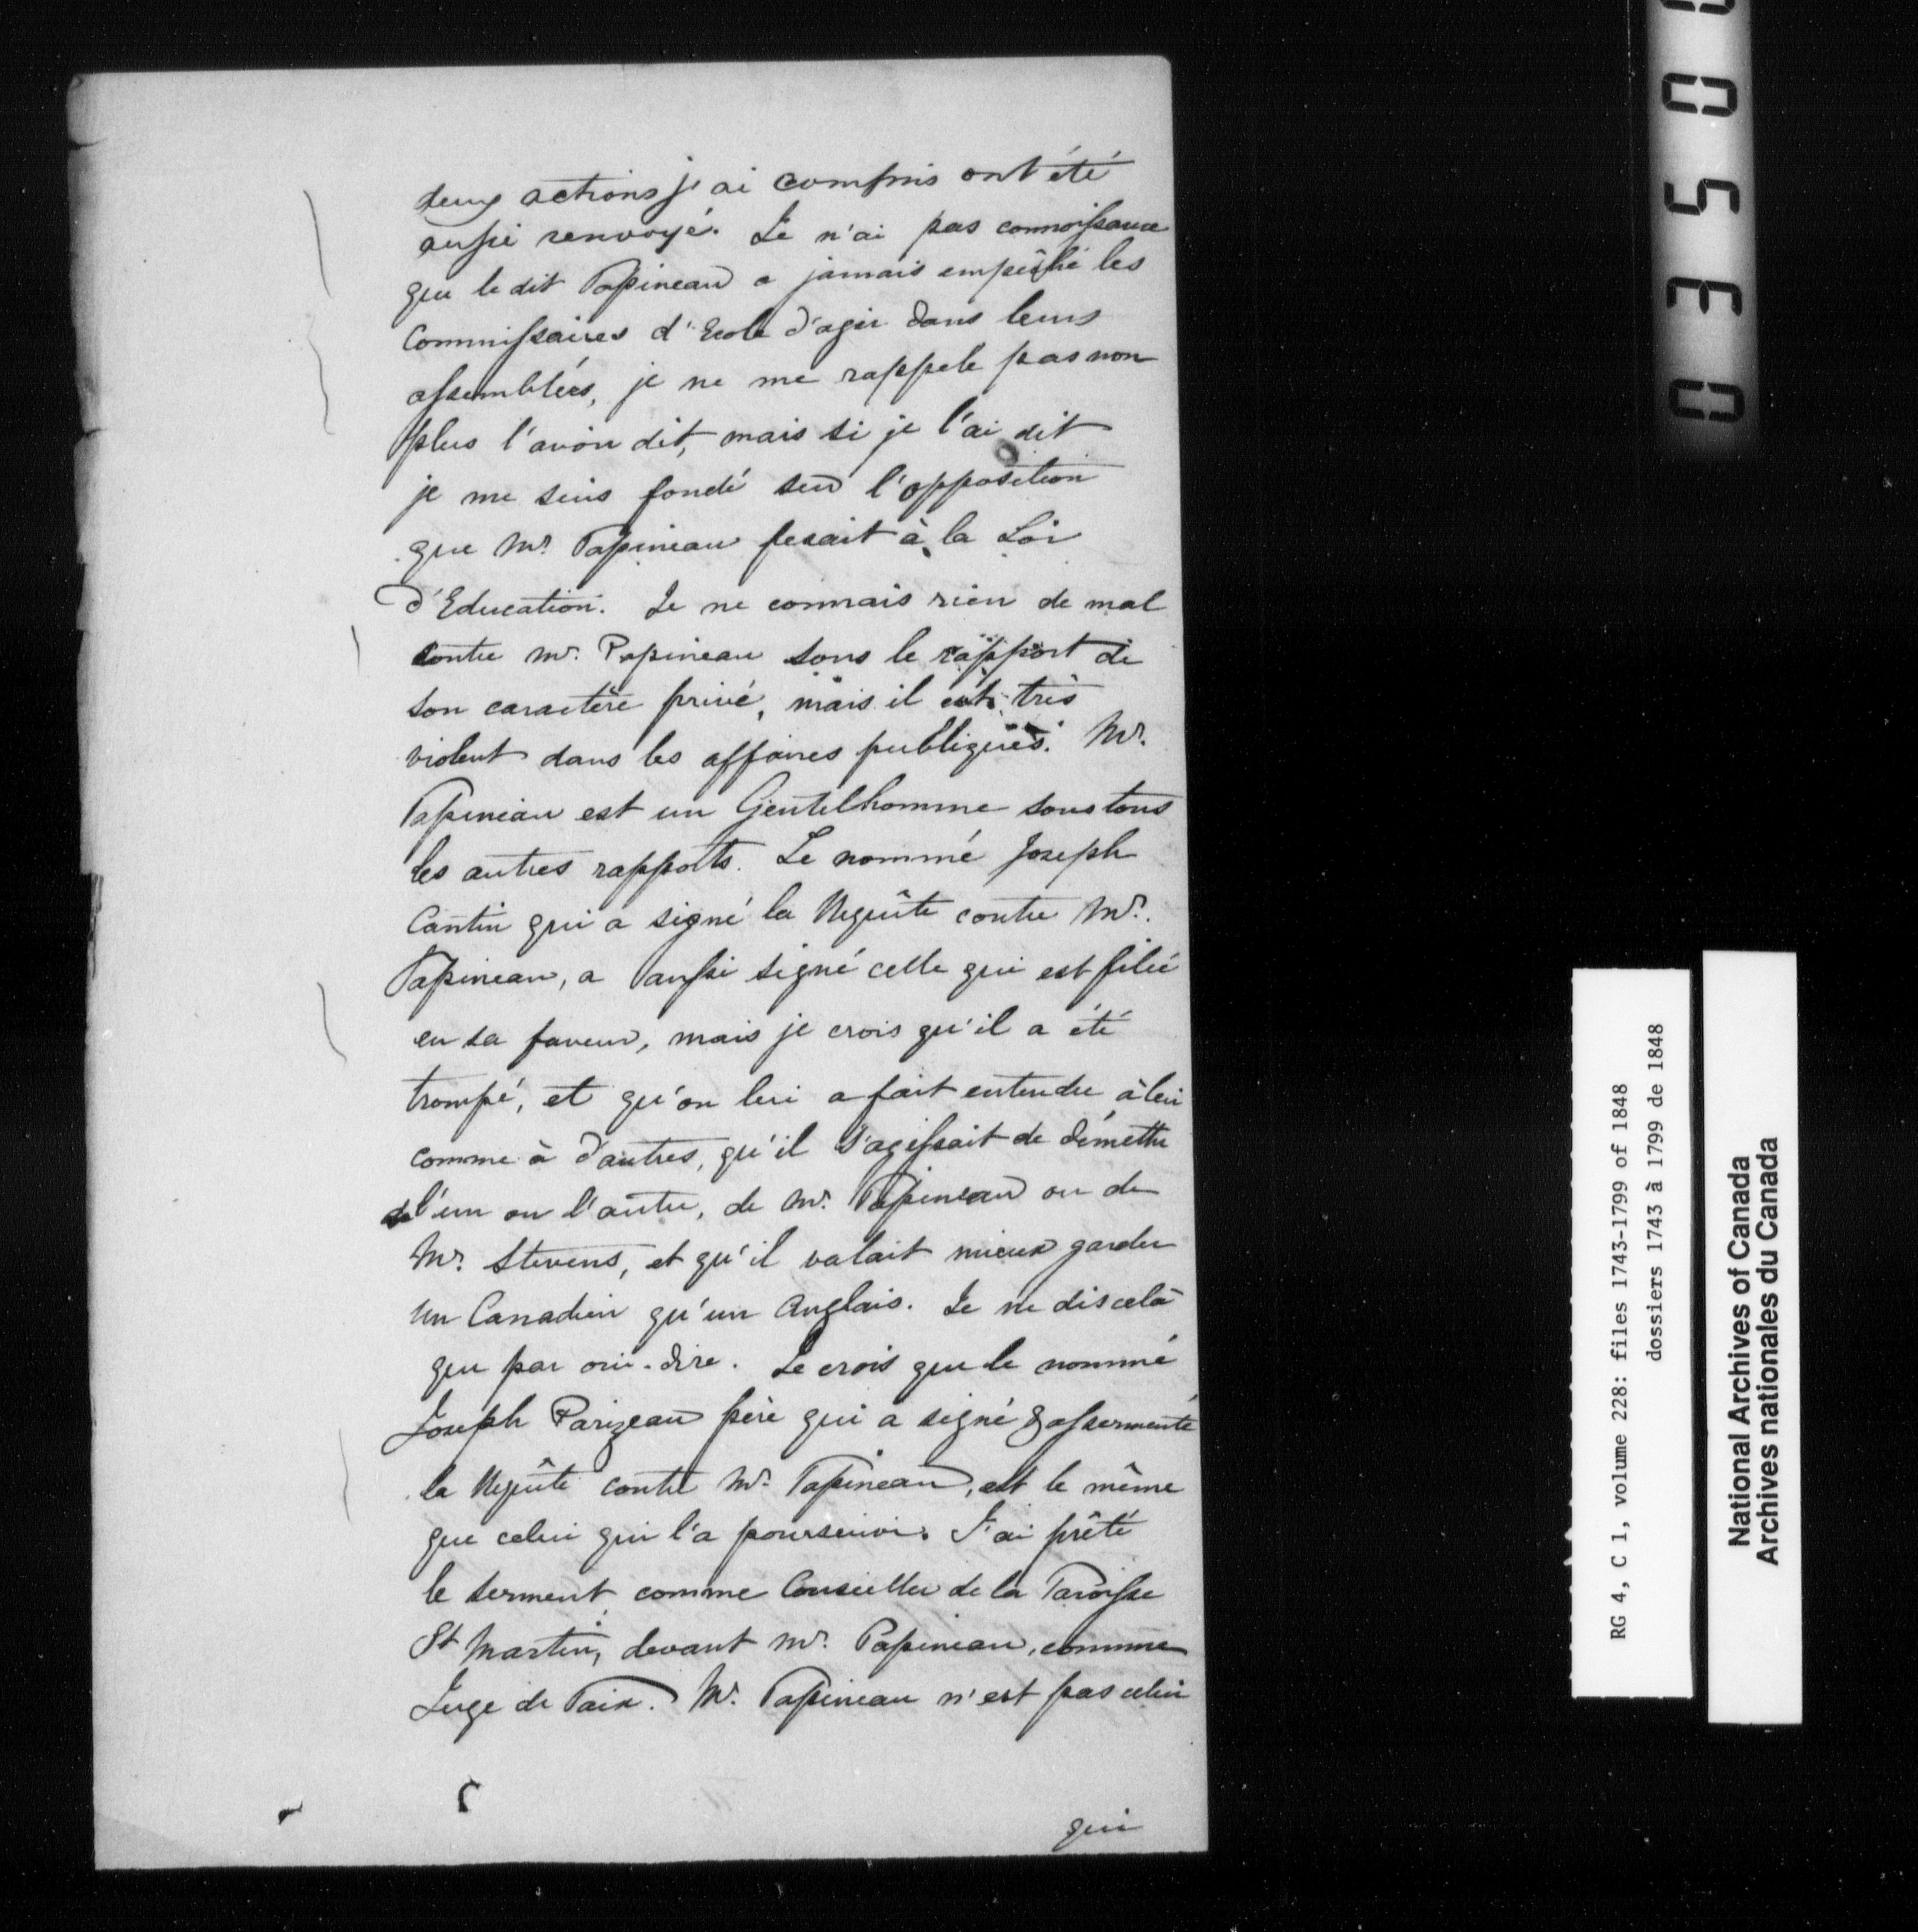 deux actions j'ai compris ont été
aussi renvoyé. Je n'ai pas connoissance
que le dit Papineau a jamais empêché les
Commissaires d'Ecole d'agir dans leurs
assemblées, je ne me rappele pas non
plus l'avoir dit, mais si je l'ai dit
je me suis fondé sur l'opposition
que Mr. Papineau fesait à la Loi
d'Education. Je ne connais rien de mal
contre Mr. Papineau sous le rapport de
son caractère privé, mais il est très
violent dans les affaires publiques. Mr.
Papineau est un Gentelhomme sous tous
les autres rapports. Le nommé Joseph
Cantin qui a signé la Requête contre Mr.
Papineau, a aussi signé celle qui est filée
en sa faveur, mais je crois qu'il a été
trompé, et qu'on lui a fait entendre à lui
comme à d'autres, qu'il s'agissait de démettre
l'un ou l'autre, de Mr. Papineau ou de
Mr. Stevens, et qu'il valait mieux garder
un Canadien qu'un Anglais. Je ne dis celà
que par oui-dire. Je crois que le nommé
Joseph Parizeau père qui a signé & assermenté
la Requête contre Mr. Papineau, est le même
que celui qui l'a poursuivi. J'ai prêté
le serment comme Conseiller de la Paroisse
St Martin, devant Mr. Papineau, comme
Juge de Paix. Mr. Papineau n'est pas celui
qui
0350
RG 4, C 1, volume 228: files 1743-1799 of 1848
dossiers 1743 à 1799 de 1848
National Archives of Canada
Archives nationales du Canada